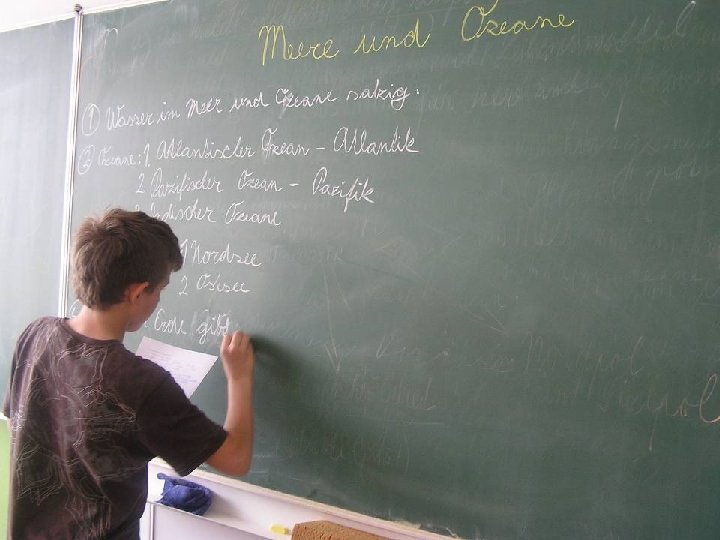 Meere und Ozeane
① Wasser im Meer und Ozeane salzig.
② Ozeane: 1. Atlantischer Ozean – Atlantik
2. Pazifischer Ozean – Pazifik
Indischer Ozeane
1 Nordsee
2 Ostsee
Erde gibt